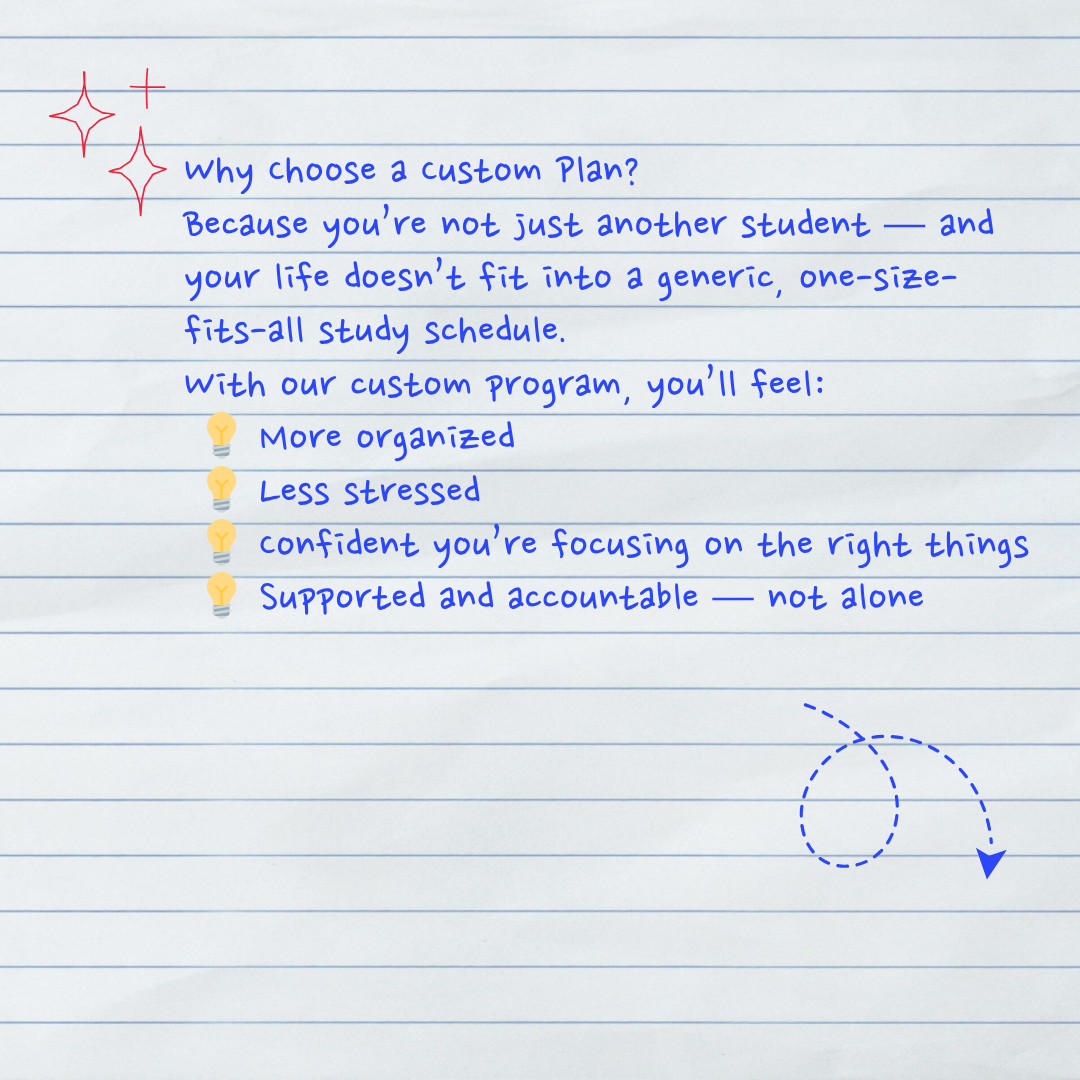 Why choose a custom Plan?
Because you're not just another student — and
your life doesn't fit into a generic, one-size-
fits-all study schedule.
With our custom program, you'll feel:
More organized
Less stressed
confident you're focusing on the right things
Supported and accountable — not alone